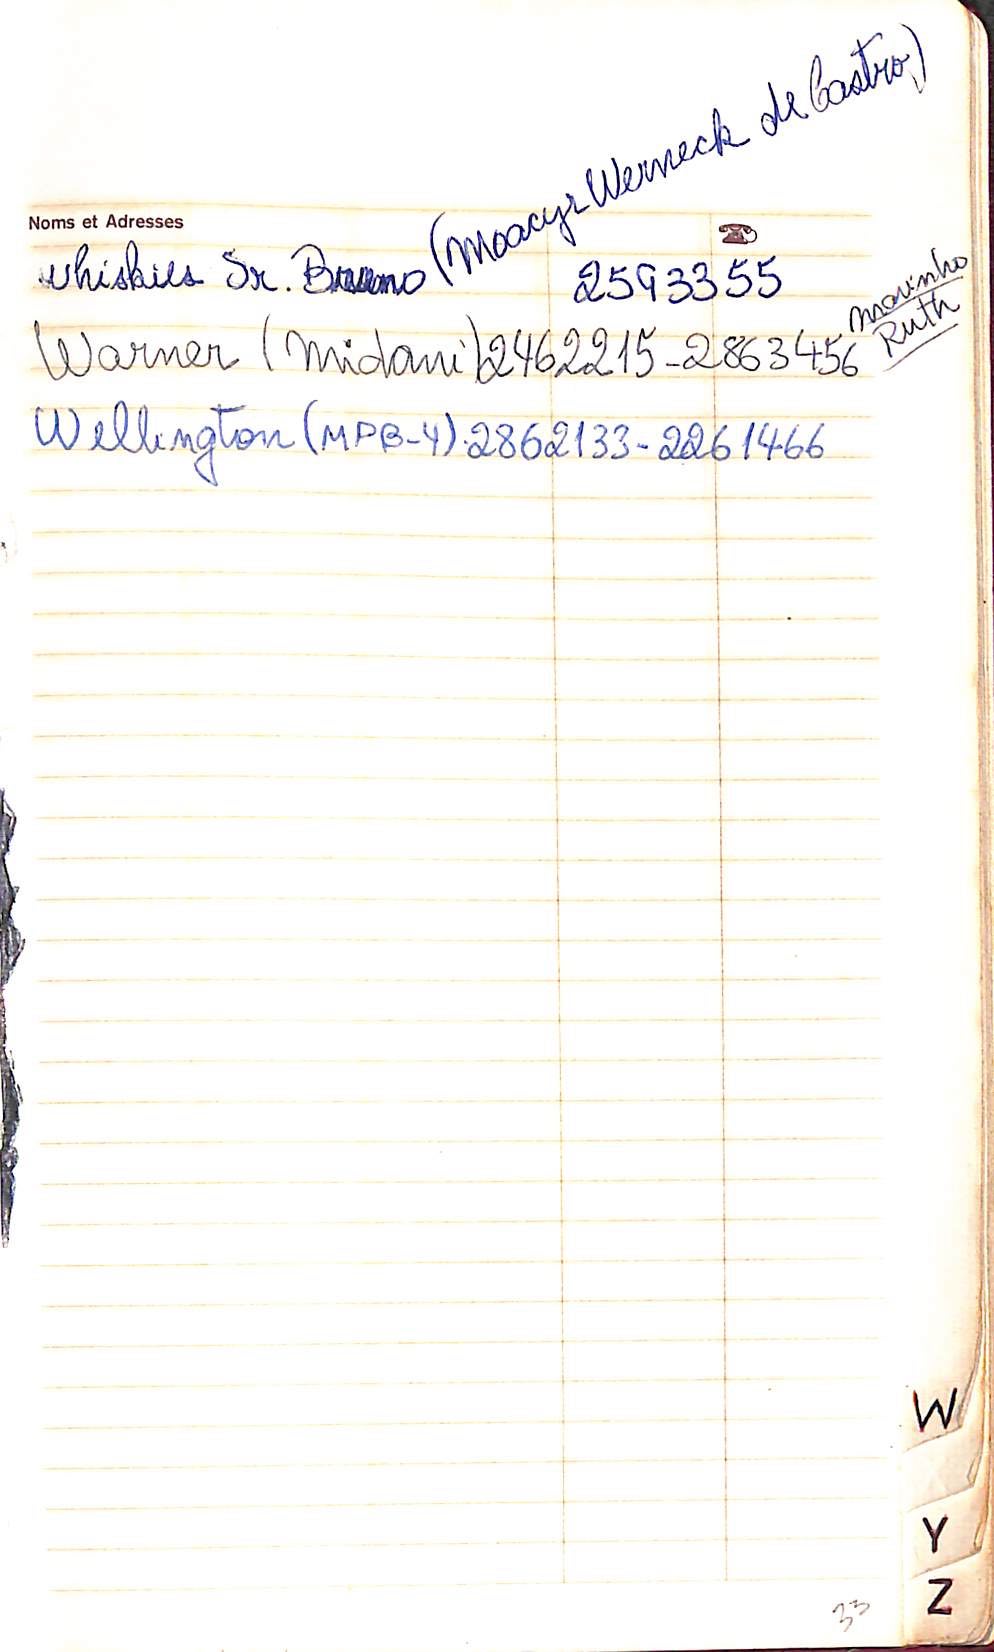 Noms et Adresses
whiskies Sr. Bruno (Moacyr Werneck de Castro) 2593355
Warner (Midani) 2462215-2863456 Marinho
Ruth
Wellington (MPB-4). 2862133-2261466
W
Y
Z
33